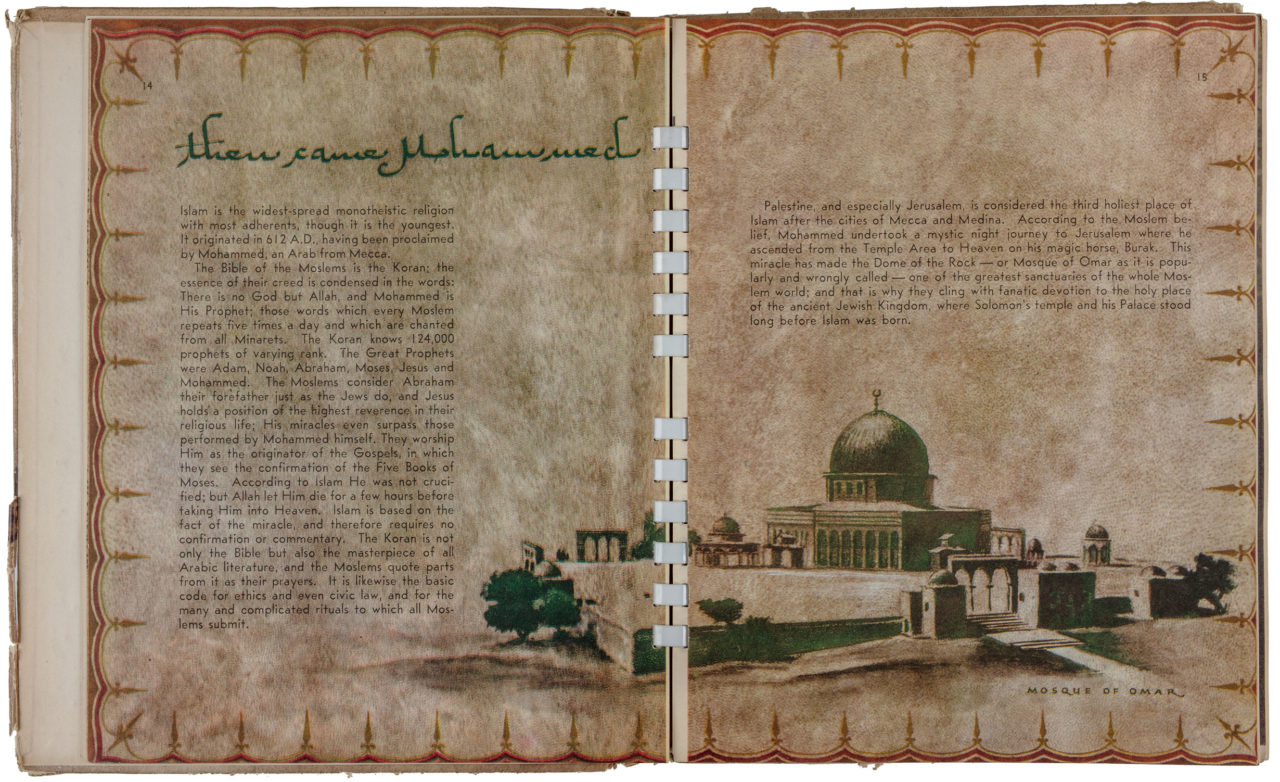 14
then came Mohammed
Islam is the widest-spread monotheistic religion
with most adherents, though it is the youngest.
It originated in 612 A.D., having been proclaimed
by Mohammed, an Arab from Mecca.
The Bible of the Moslems is the Koran; the
essence of their creed is condensed in the words:
There is no God but Allah, and Mohammed is
His Prophet; those words which every Moslem
repeats five times a day and which are chanted
from all Minarets. The Koran knows 124,000
prophets of varying rank. The Great Prophets
were Adam, Noah, Abraham, Moses, Jesus and
Mohammed. The Moslems consider Abraham
their forefather just as the Jews do, and Jesus
holds a position of the highest reverence in their
religious life; His miracles even surpass those
performed by Mohammed himself. They worship
Him as the originator of the Gospels, in which
they see the confirmation of the Five Books of
Moses. According to Islam He was not cruci-
fied; but Allah let Him die for a few hours before
taking Him into Heaven. Islam is based on the
fact of the miracle, and therefore requires no
confirmation or commentary. The Koran is not
only the Bible but also the masterpiece of all
Arabic literature, and the Moslems quote parts
from it as their prayers. It is likewise the basic
code for ethics and even civic law, and for the
many and complicated rituals to which all Mos-
lems submit.
15
Palestine, and especially Jerusalem, is considered the third holiest place of
Islam after the cities of Mecca and Medina. According to the Moslem be-
lief, Mohammed undertook a mystic night journey to Jerusalem where he
ascended from the Temple Area to Heaven on his magic horse, Burak. This
miracle has made the Dome of the Rock — or Mosque of Omar as it is popu-
larly and wrongly called — one of the greatest sanctuaries of the whole Mos-
lem world; and that is why they cling with fanatic devotion to the holy place
of the ancient Jewish Kingdom, where Solomon's temple and his Palace stood
long before Islam was born.
MOSQUE OF OMAR